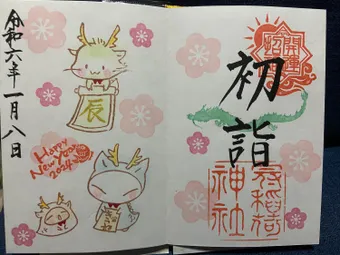 開運
招福
初詣
神社
令和六年一月八日
辰
Happy
New Year
2024